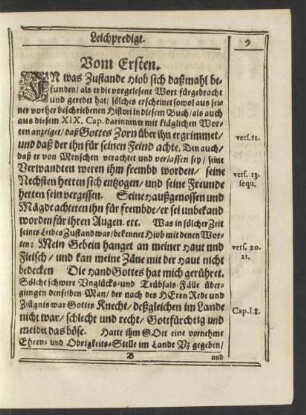 Leichpredigt.
9
Vom Ersten.
IN was Zustande Hiob sich daßmahl be-
funden/ als er die vorgelesene Wort fürgebracht
und geredet hat/ solches erscheinet sowol aus sei-
ner vorher beschriebenen Histori in diesem Buch/ als auch
aus diesem XIX. Cap. darinnnen mit kläglichen Wor-
ten anzeiget/ daß Gottes Zorn über ihn ergrimmet/
und daß der ihn für seinen Feind achte. Den auch/
vers. 11.
daß er von Menschen verachtet und verlassen sey/ seine
Verwandten weren ihm frembd worden/ seine
vers. 13.
Nechsten hetten sich entzogen/ und seine Freunde
sequ.
hetten sein vergessen. Seine Haußgenossen und
Mägde achteren ihn für frembde/ er sei unbekand
worden für ihren Augen. etc. Was in solcher Zeit
seines Leibes Zustand war/ bekennet Hiob mit denen Wor-
ten: Mein Gebein hanget an meiner Haut und
vers. 20.
Fleisch/ und kan meine Zäne mit der Haut nicht
21.
bedecken Die Hand Gottes hat mich gerühret.
Solcht schwere Unglücks- und Trübsals-Fälle über-
giengen denselben Man/ der nach des HErrn Rede und
Zeugnis war Gottes Knecht/ deßgleichen im Lande
nicht war/ schlecht und recht/ Gottfürchtig und
Cap. 1. 8.
meidet das böse. Hatte ihm GOtt eine vornehme
Ehren- und Obrigkeits-Stelle im Lande Uz gegeben/
B
und